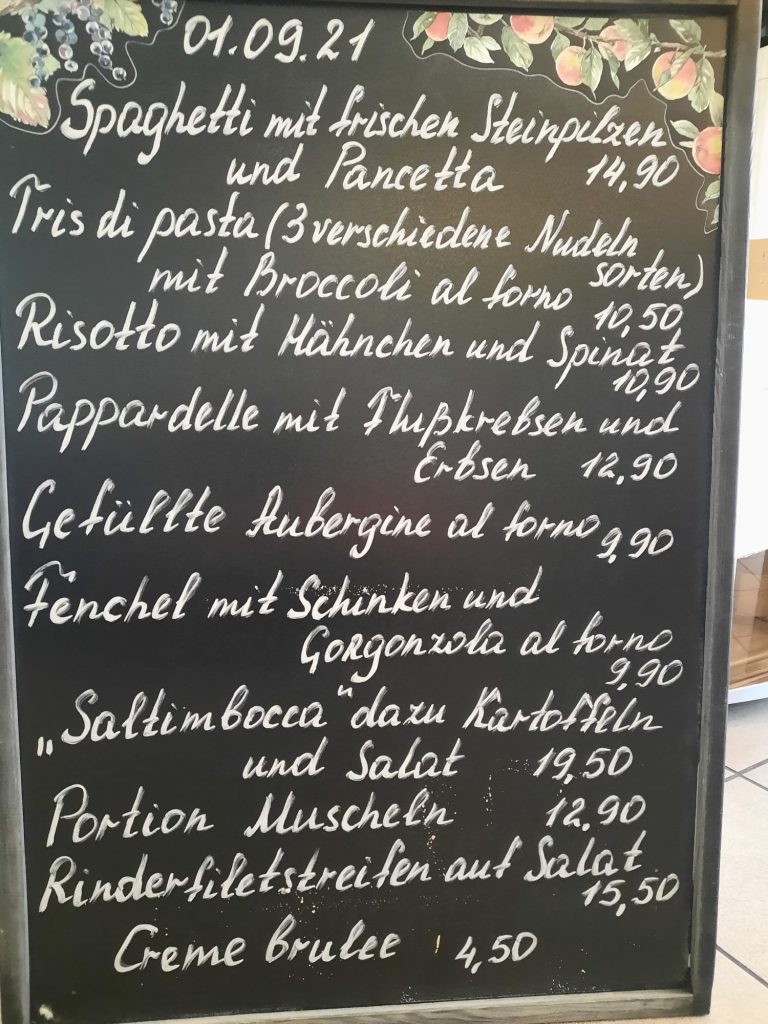 01.09.21
Spaghetti mit frischen Steinpilzen
und Pancetta 14,90
Tris di pasta (3 verschiedene Nudeln
sorten)
mit Broccoli al forno 10,50
Risotto mit Hähnchen und Spinat
10,90
Pappardelle mit Flußkrebsen und
Erbsen 12,90
Gefüllte Aubergine al forno 9,90
Fenchel mit Schinken und
Gorgonzola al forno
9,90
„Saltimbocca“ dazu Kartoffeln
und Salat 19,50
Portion Muscheln 12,90
Rinderfiletstreifen auf Salat
15,50
Creme brulee 4,50